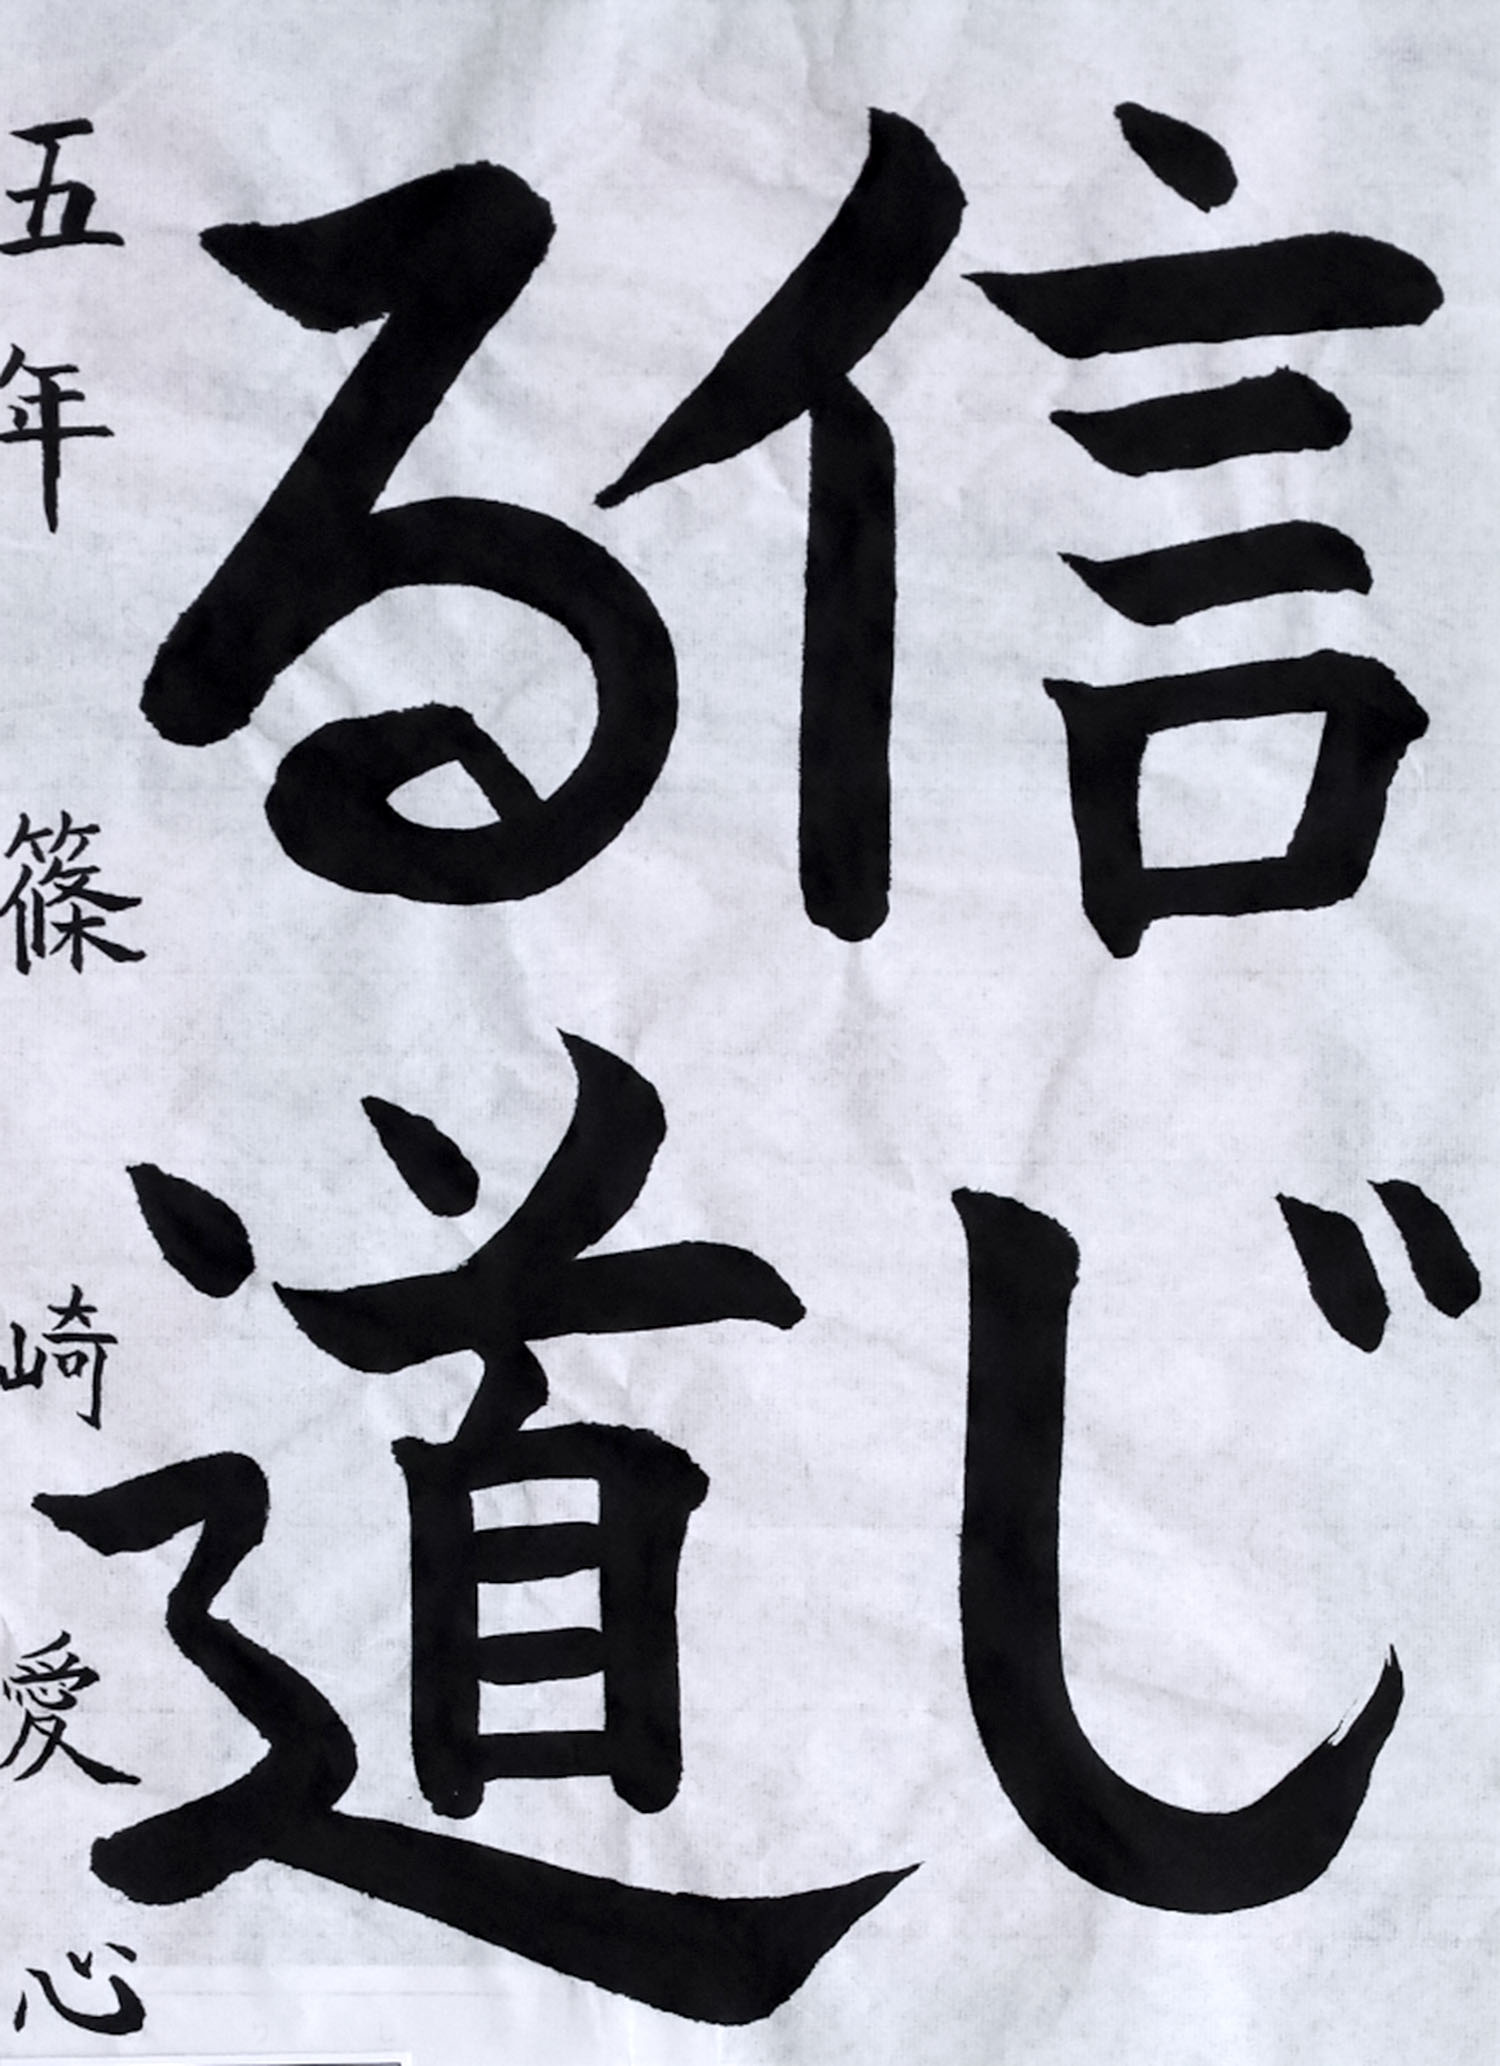 信じ
る道
五年 篠崎愛心